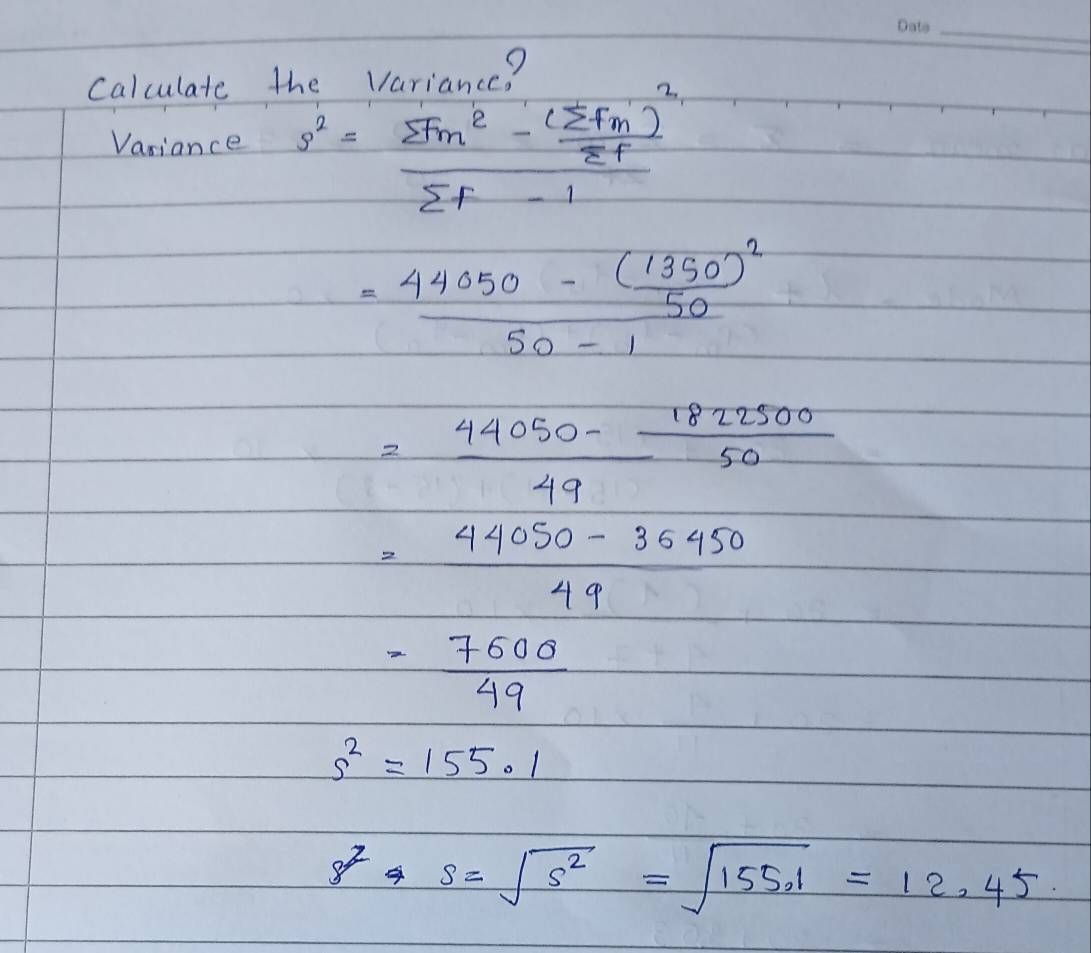 Data
Calculate the Variance?
Variance s² = ΣFm² - (Σfm)²
Σf
ΣF - 1
= 44050 - (1350)²
50
50 - 1
= 44050 - 1822500
50
49
= 44050 - 36450
49
= 7600
49
s² = 155.1
s² → s = √s² = √155.1 = 12.45.